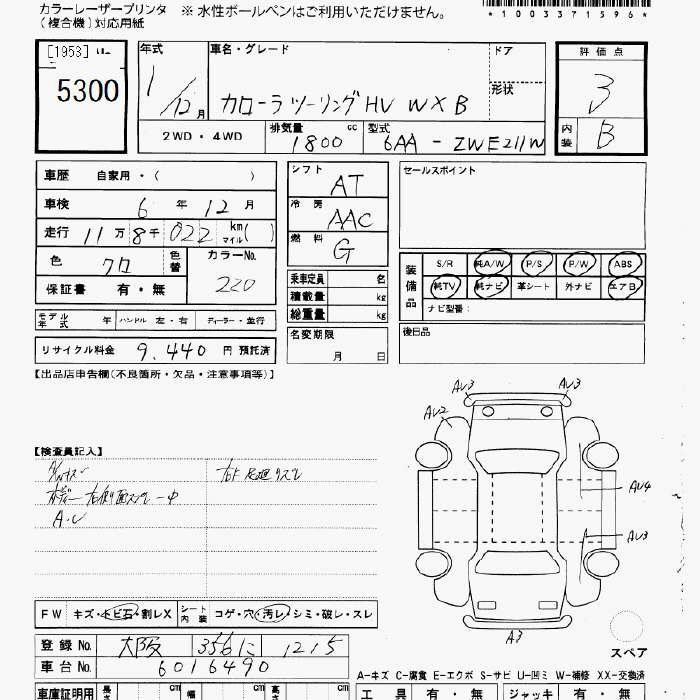 カラーレーザープリンタ
(複合機)対応用紙
※ 水性ボールペンはご利用いただけません。
*1003371596*
[1953]
5300
年式
1/12月
車名・グレード
カローラツーリングHV W×B
ドア
形状
評価点
3
内装
B
2WD・4WD
排気量
1800 cc
型式
6AA-ZWE211W
車歴 自家用・( )
車検 6年12月
走行 11万8千022 km マイル( )
色 クロ
色替
カラーNo.
220
保証書 有・無
シフト
AT
冷房
AAC
燃料
G
乗車定員 名
積載量 kg
総重量 kg
セールスポイント
装備品
S/R 純A/W P/S P/W ABS
純TV 純ナビ 革シート 外ナビ エアB
ナビ型番:
モデル年式 年 ハンドル 左・右 ディーラー・並行
リサイクル料金 9,440 円 預託済
名変期限
月 日
後日品
【出品店申告欄(不良箇所・欠品・注意事項等)】
【検査員記入】
AV3
AV3
AV2
AV4
AV3
A3
スペア
FW キズ・トビ石・割レX
シート内装 コゲ・穴・汚レ・シミ・破レ・スレ
登録No. 大阪 356 に 1215
車台No. 6016490
A-キズ C-腐食 E-エクボ S-サビ U-凹ミ W-補修 XX-交換済
車庫証明用 長さ cm 幅 cm 高さ cm
工具 有・無 ジャッキ 有・無